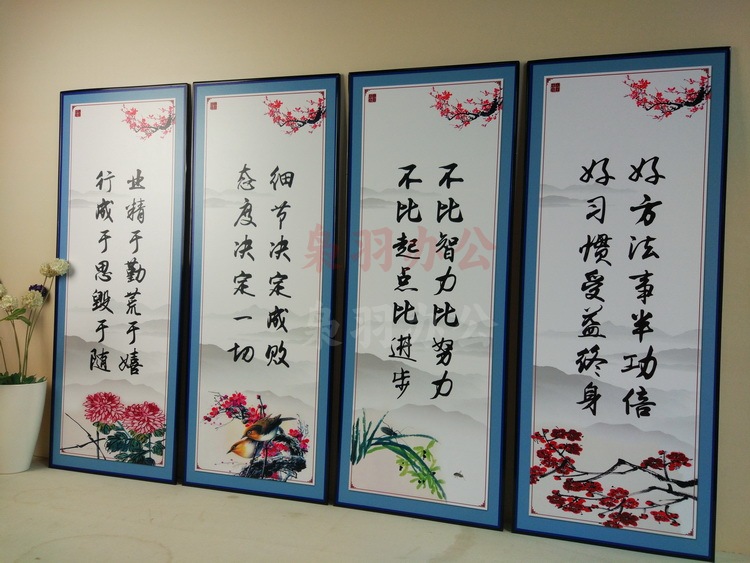 业精于勤荒于嬉
行成于思毁于随
细节决定成败
态度决定一切
不比智力比努力
不比起点比进步
好方法事半功倍
好习惯受益终身
枭羽办公
枭羽办公